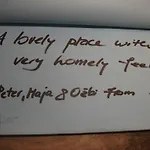 A lovely place with
very homely feel
Peter, Maja & Ozbi from